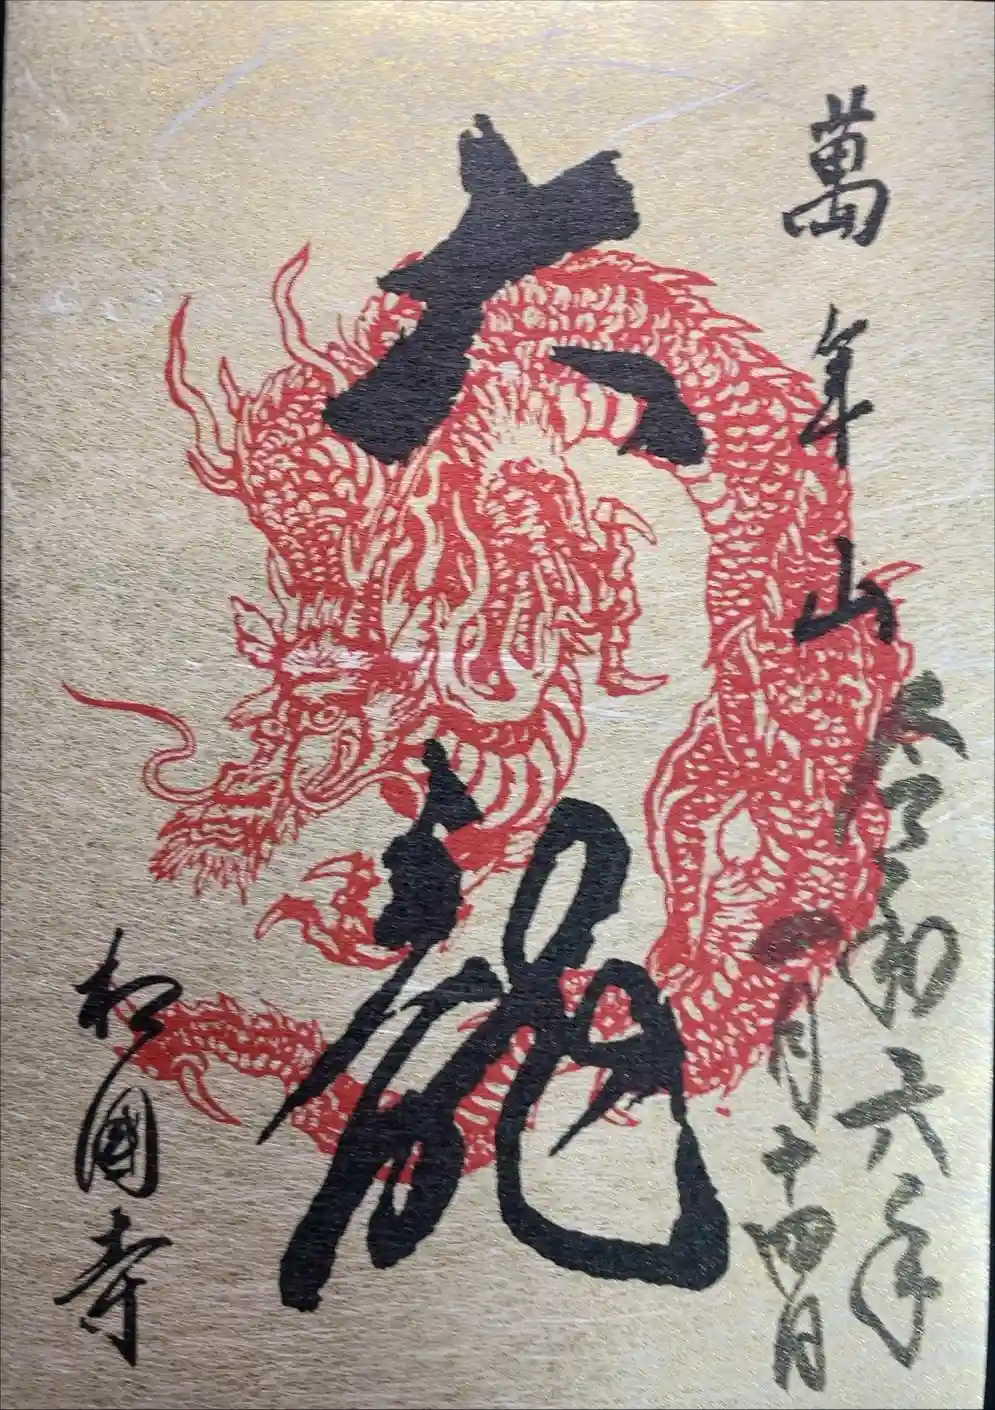 萬年山
令和六年
一月十四日
六龍
相國寺